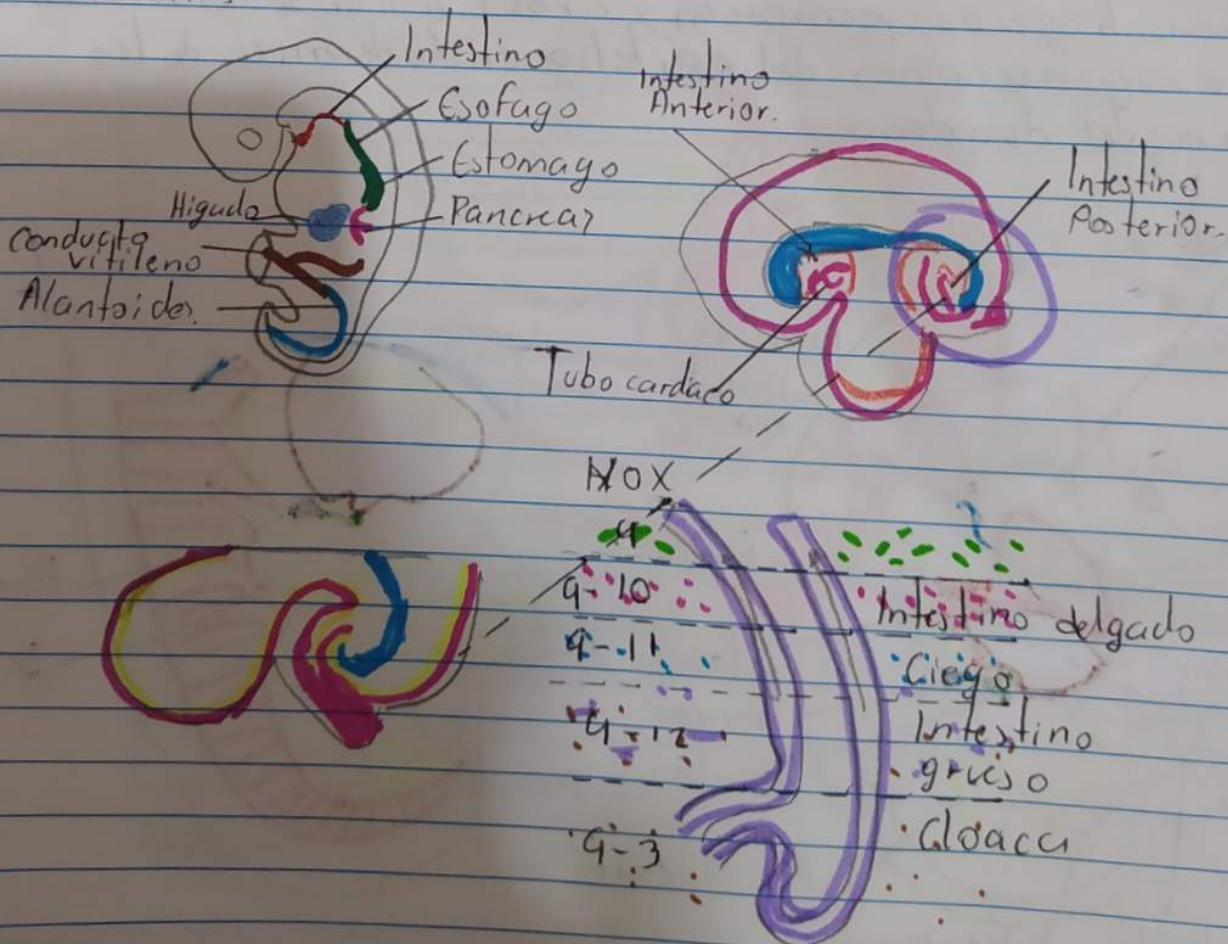 Intestino
Esofago
Estomago
Pancreas
Higado
Conducto
vitileno
Alantoides.
Intestino
Anterior.
Intestino
Posterior.
Tubo cardaco
HOX
9
9-10
9-11
9-12
9-3
Intestino delgado
Ciego
Intestino
grueso
Cloaca